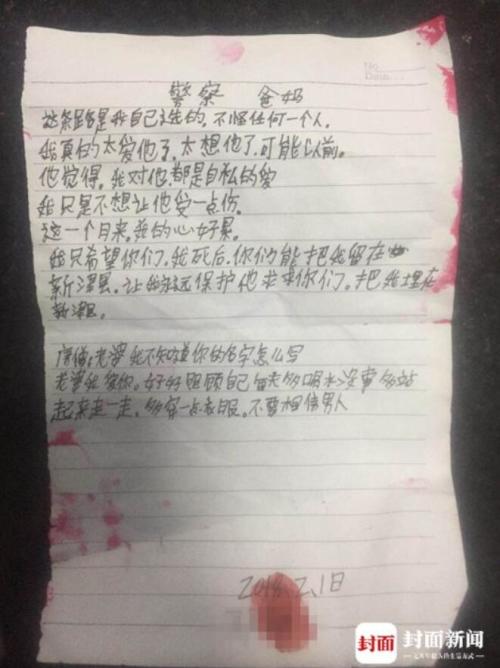 No.
Date.
警察 爸妈
这条路是我自己选的，不怪任何一个人。
我真的太爱他了，太想他了，可能以前。
他觉得，我对他，都是自私的爱
我只是不想让他受一点伤。
这一个月来，我的心好累。
我只希望你们，我死后，你们能把我留在
新津县，让我永远保护他求求你们，把我埋在
新津。
老婆我不知道你的名字怎么写
老婆我爱你，好好照顾自己 每天多喝水没事多站
起来走一走，多穿一点衣服，不要相信男人
2018.2.1日
封面 封面新闻